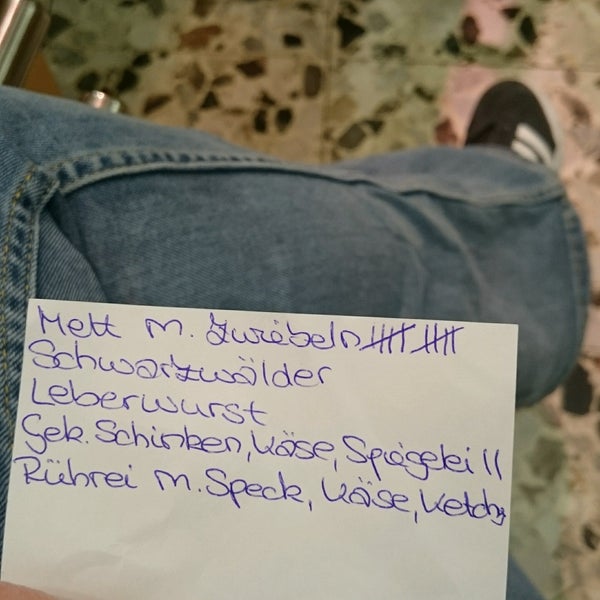 Mett m. Zwiebeln 𝍸 𝍸
Schwarzwälder
Leberwurst
Gek. Schinken, Käse, Spiegelei ||
Rührei m. Speck, Käse, Ketchup